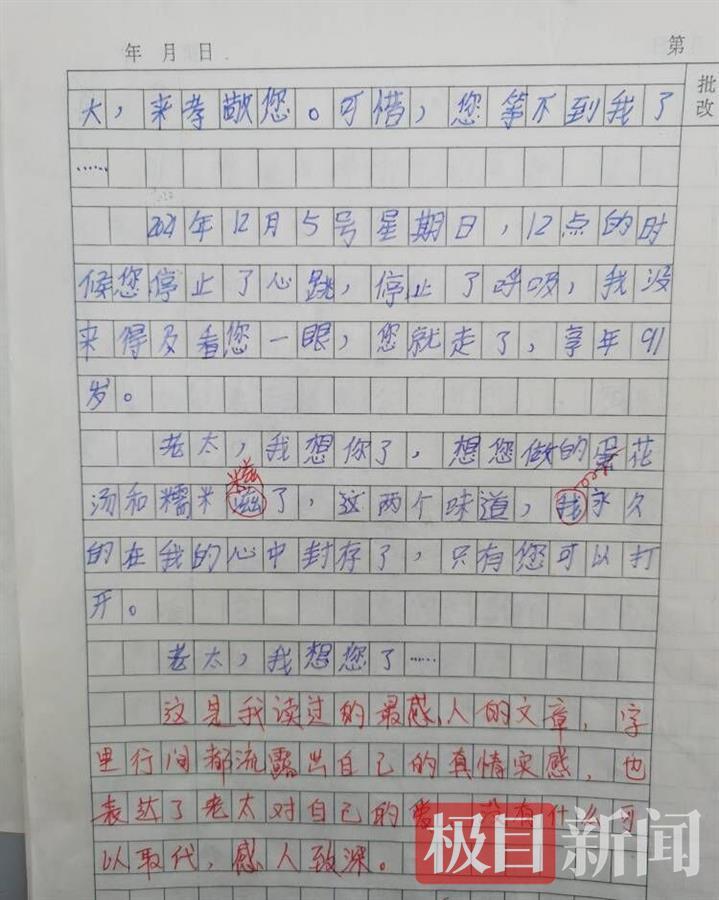 年 月 日 第
批改
大，来孝敬您。可惜，您等不到我了
……
2021年12月5号星期日，12点的时
候您停止了心跳，停止了呼吸，我没
来得及看您一眼，您就走了，享年91
岁。
老太，我想你了，想您做的蛋花
糍
汤和糯米滋了，这两个味道，我永久
的在我的心中封存了，只有您可以打
开。
老太，我想您了……
这是我读过的最感人的文章，字
里行间都流露出自己的真情实感，也
表达了老太对自己的爱 没有什么可
以取代，感人致深。
极目新闻